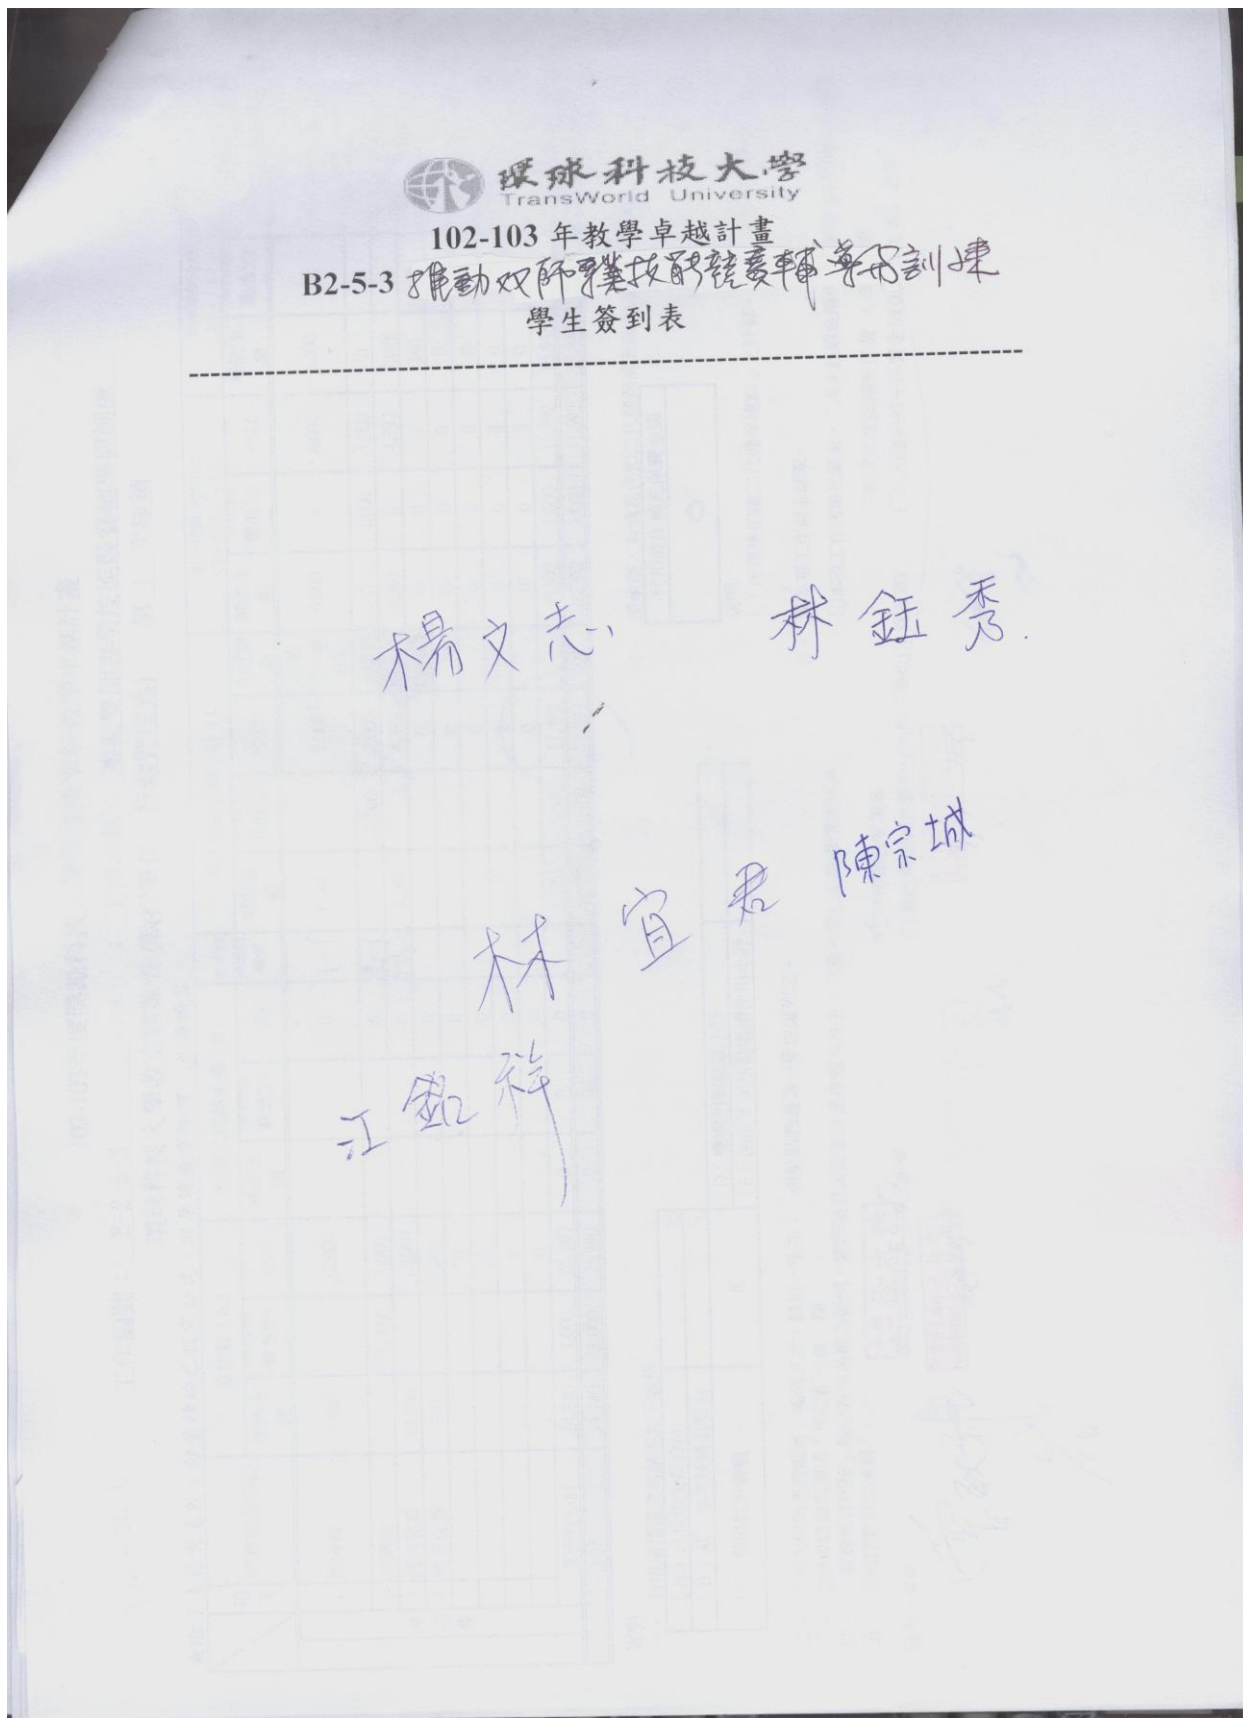 環球科技大學
TransWorld University
102-103 年教學卓越計畫
B2-5-3 推動双師職技能競賽輔導與訓練
學生簽到表
楊文志 林鈺秀
林宜君 陳宗城
江銘祥